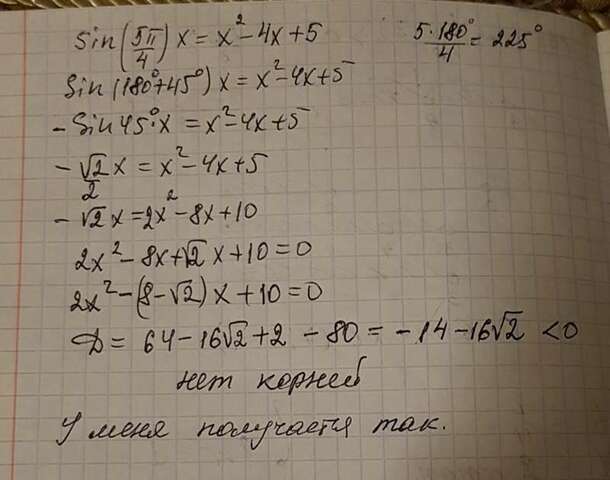 sin(5π/4) x = x² - 4x + 5
5·180°/4 = 225°
sin(180°+45°) x = x² - 4x + 5
- sin 45°·x = x² - 4x + 5
- √2/2 x = x² - 4x + 5
- √2 x = 2x² - 8x + 10
2x² - 8x + √2 x + 10 = 0
2x² - (8 - √2) x + 10 = 0
D = 64 - 16√2 + 2 - 80 = -14 - 16√2 < 0
нет корней
У меня получается так.